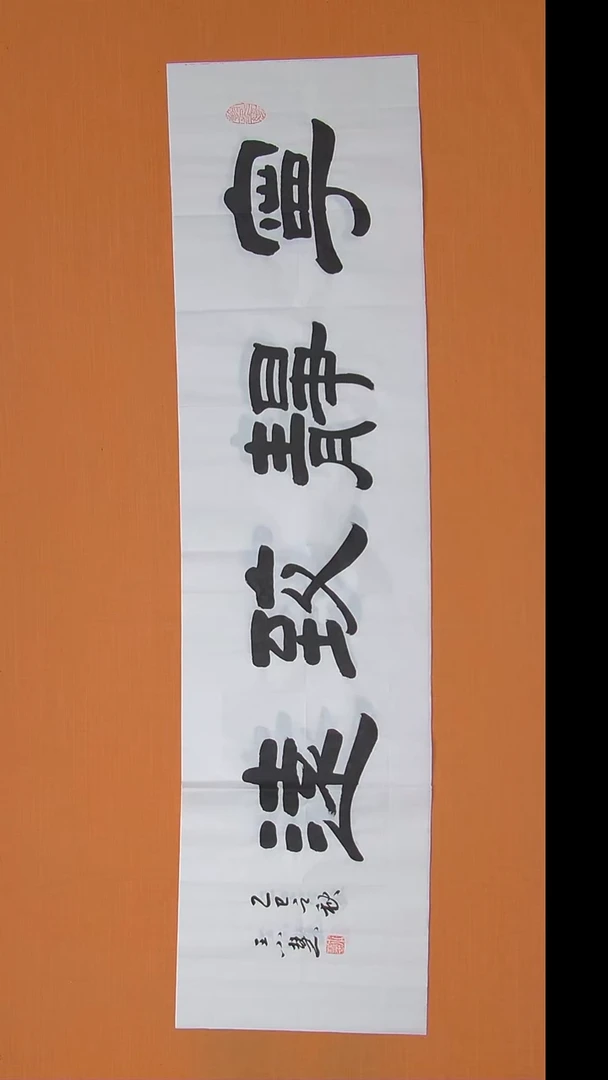 寧靜致遠
乙巳之秋
王小慧